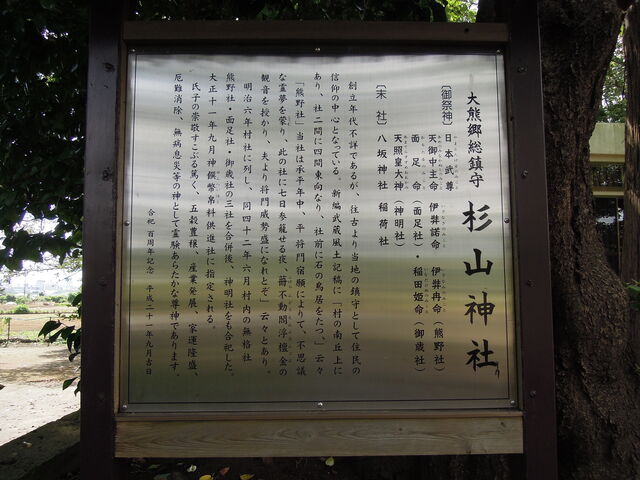 大熊郷総鎮守 杉山神社
〔御祭神〕 日本武尊
天御中主命 伊弉諾命 伊弉冉命(熊野社)
面足命(面足社)・稲田姫命(御歳社)
天照皇大神(神明社)
〔末社〕 八坂神社 稲荷社
創立年代不詳であるが、往古より当地の鎮守として住民の
信仰の中心となっている。新編武蔵風土記稿に「村の南丘上に
あり、社二間に四間東向なり、社前に石の鳥居をたつ。」云々
「熊野社」当社は承平年中、平将門宿願によりて、不思議
な霊夢を蒙り、此の社に七日参籠せる夜、閻浮檀金の
観音を授かり、夫より将門威勢盛になれとぞ」云々とあり。
明治六年村社に列し、同四十二年六月村内の無格社
熊野社・面足社・御歳社の三社を合併後、神明社をも合祀した。
大正十一年九月神饌幣帛料供進社に指定される。
氏子の崇敬すこぶる篤く、五穀豊穣、産業発展、家運隆盛、
厄難消除、無病息災等の神として霊験あらたかな尊神であります。
合祀百周年記念 平成二十一年九月吉日